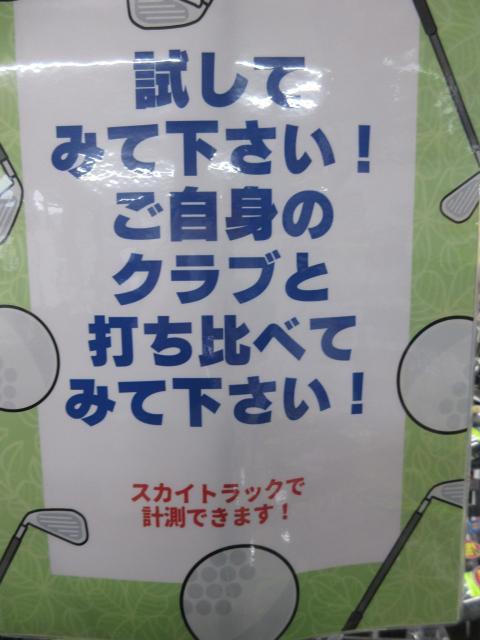 試して
みて下さい！
ご自身の
クラブと
打ち比べて
みて下さい！
スカイトラックで
計測できます！